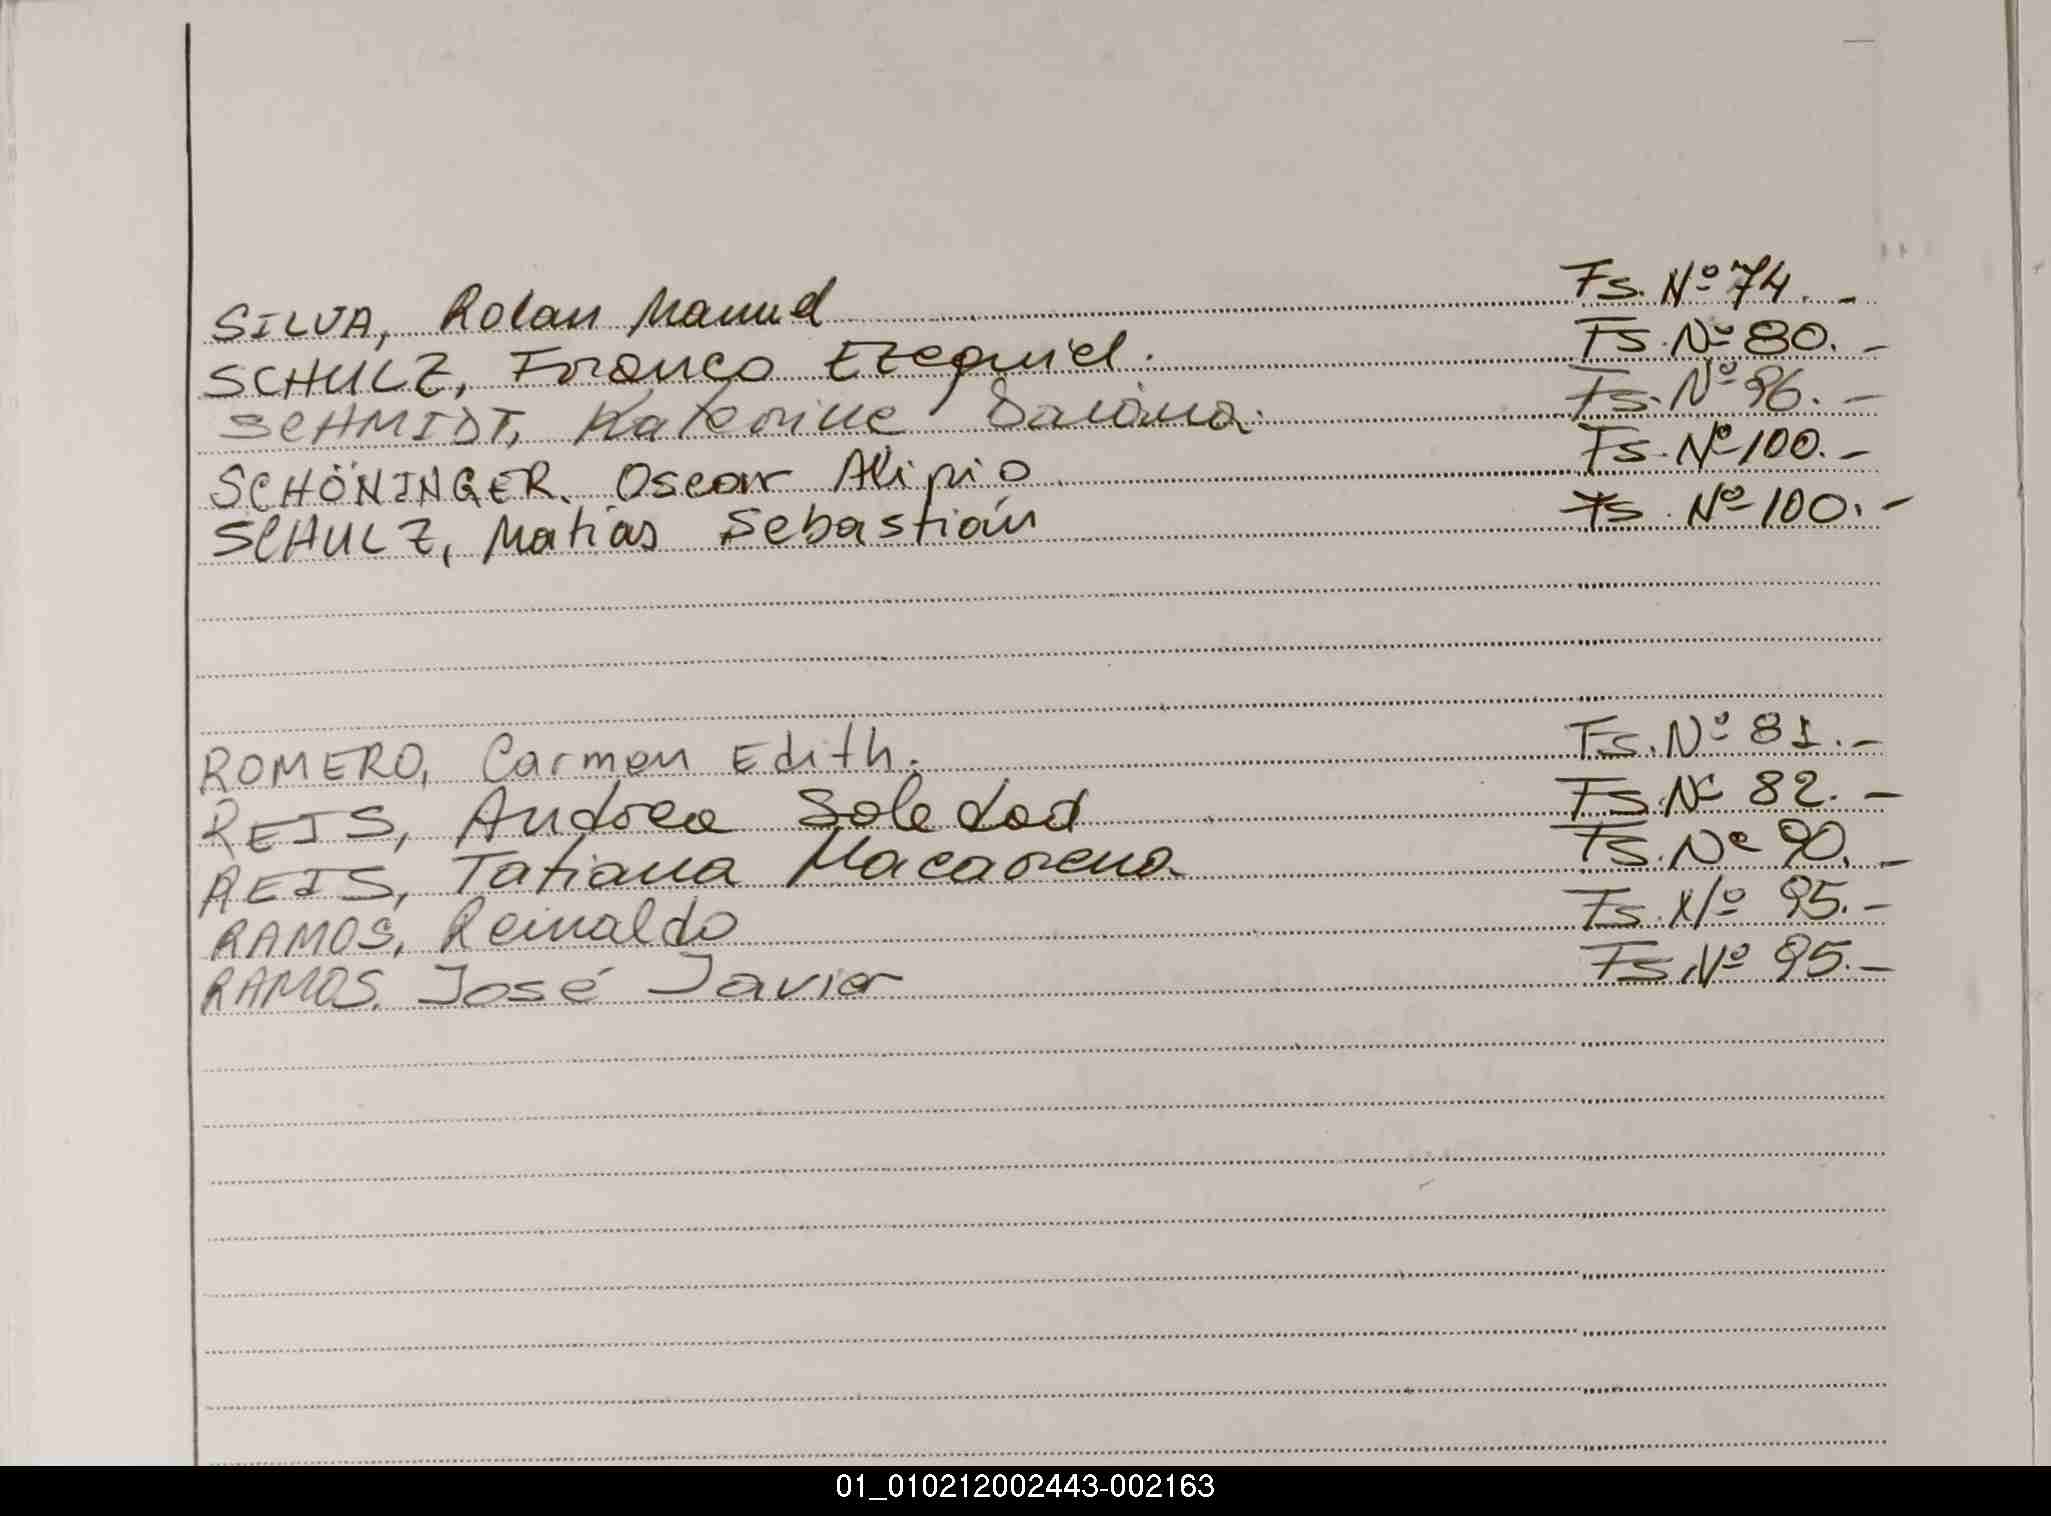 SILVA, Rolan Manuel Fs. Nº 74. -
SCHULZ, Franco Ezequiel. Fs. Nº 80. -
SCHMIDT, Katerine Daiana. Fs. Nº 96. -
SCHÖNINGER. Oscar Alipio Fs. Nº 100. -
SCHULZ, Matías Sebastián Fs. Nº 100. -
ROMERO, Carmen Edith. Fs. Nº 81. -
REIS, Andrea Soledad Fs. Nº 82. -
REIS, Tatiana Macarena Fs. Nº 90. -
RAMOS, Reinaldo Fs. Nº 95. -
RAMOS, José Javier Fs. Nº 95. -
01_010212002443-002163